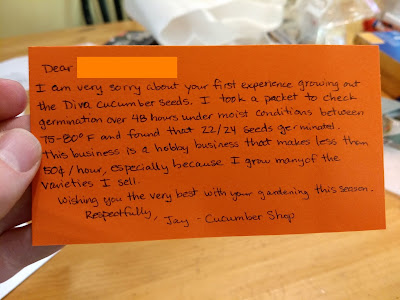 Dear
I am very sorry about your first experience growing out
the Diva cucumber seeds. I took a packet to check
germination over 48 hours under moist conditions between
75-80°F and found that 22/24 seeds germinated.
This business is a hobby business that makes less than
50¢/hour, especially because I grow many of the
varieties I sell.
Wishing you the very best with your gardening this season.
Respectfully,
Jay - Cucumber Shop